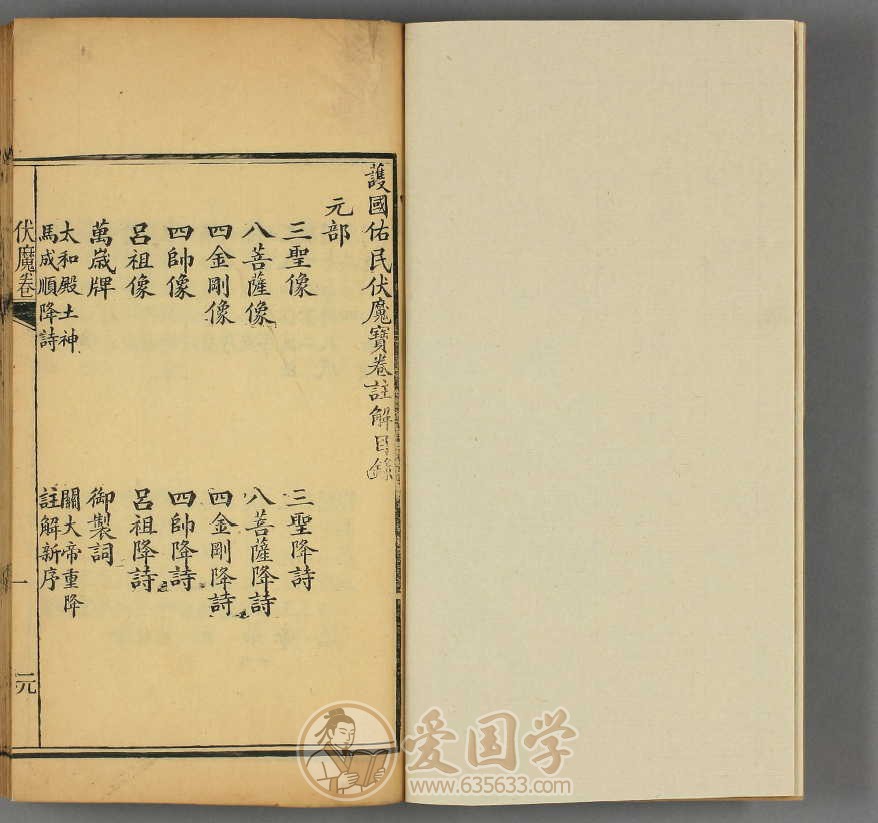 護國佑民伏魔寶卷註解目錄
元部
三聖像 三聖降詩
八菩薩像 八菩薩降詩
四金剛像 四金剛降詩
四帥像 四帥降詩
呂祖像 呂祖降詩
萬歲牌 御製詞
太和殿土神馬成順降詩 關大帝重降註解新序
伏魔卷 一 元
爱国学
www.635633.com